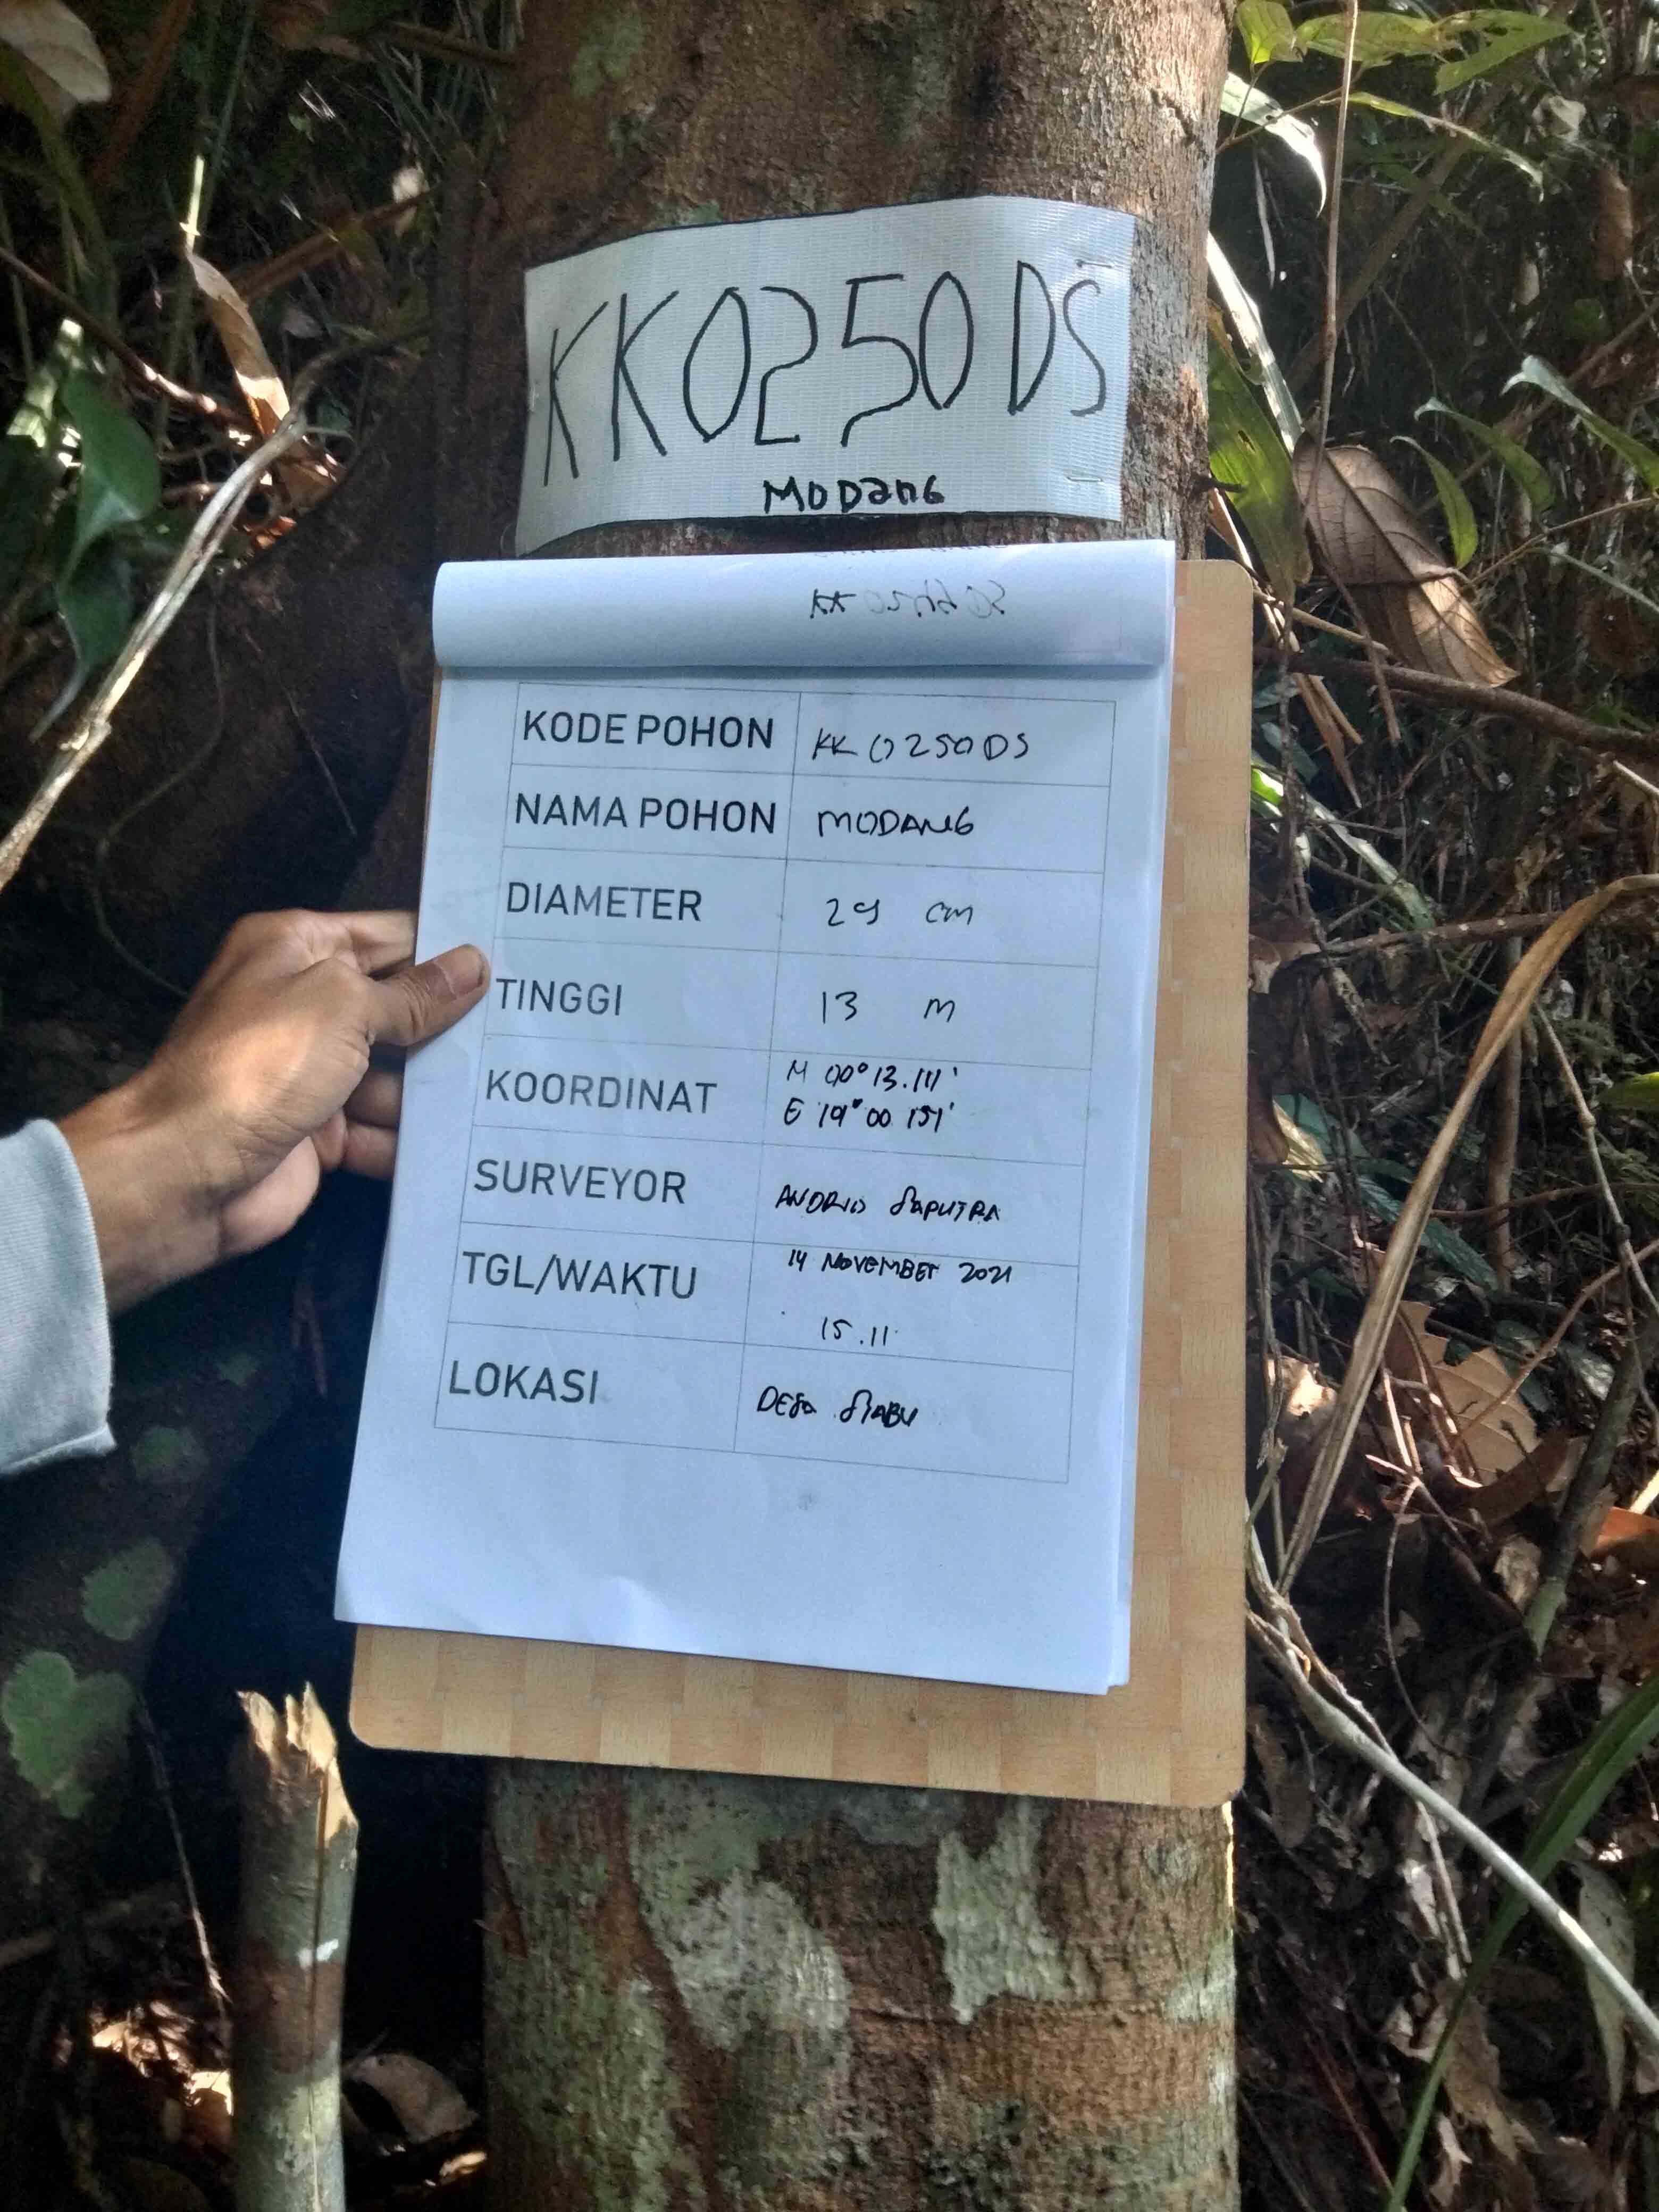 KK0250DS
MODANG
KK
KODE POHON KK 0250DS
NAMA POHON MODANG
DIAMETER 29 cm
TINGGI 13 M
KOORDINAT N 00° 13.111'
E 19° 00 151'
SURVEYOR SAPUTRA
TGL/WAKTU 14 NOVEMBER 2021
15.11
LOKASI DESA SIABU